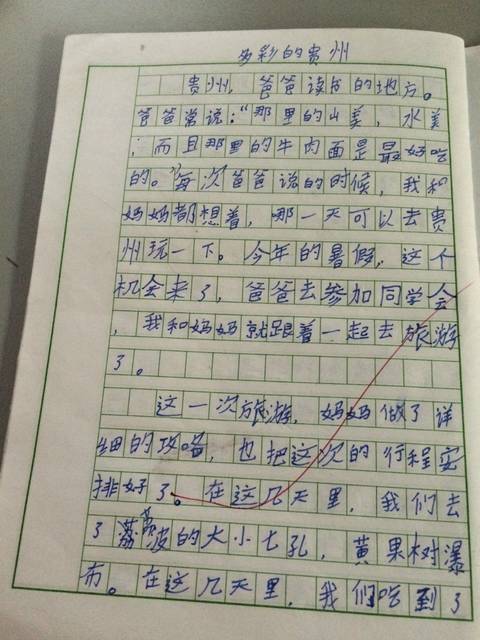 多彩的贵州
贵州，爸爸读书的地方。
爸爸常说：“那里的山美，水美
，而且那里的牛肉面是最好吃
的。”每次爸爸说的时候，我和
妈妈都想着，那一天可以去贵
州玩一下。今年的暑假，这个
机会来了，爸爸去参加同学会
，我和妈妈就跟着一起去旅游
了。
这一次旅游，妈妈做了详
细的攻略，也把这次的行程安
排好了。在这几天里，我们去
了荔波的大小七孔，黄果树瀑
布。在这几天里，我们吃到了